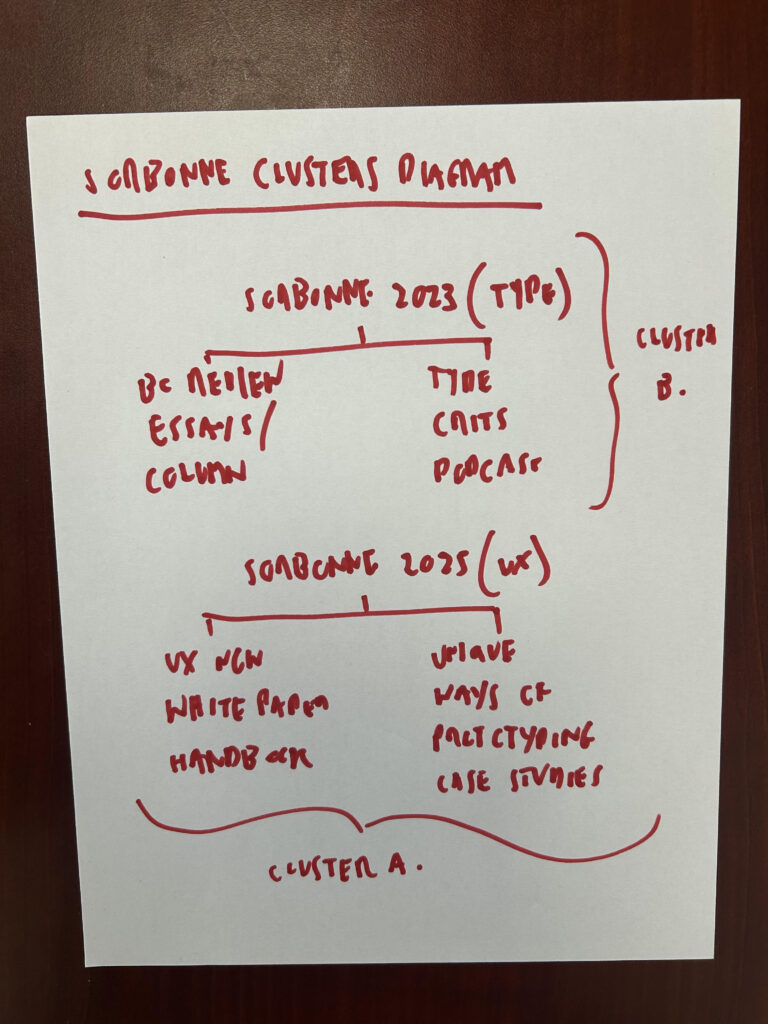 SORBONNE CLUSTERS DIAGRAM
SORBONNE 2023 (TYPE)
CLUSTER
B.
BC REVIEW
ESSAYS/
COLUMN
TYPE
CRITS
PODCAST
SORBONNE 2025 (UX)
UX NOW
WHITE PAPER
HANDBOOK
UNIQUE
WAYS OF
PROTOTYPING
CASE STUDIES
CLUSTER A.